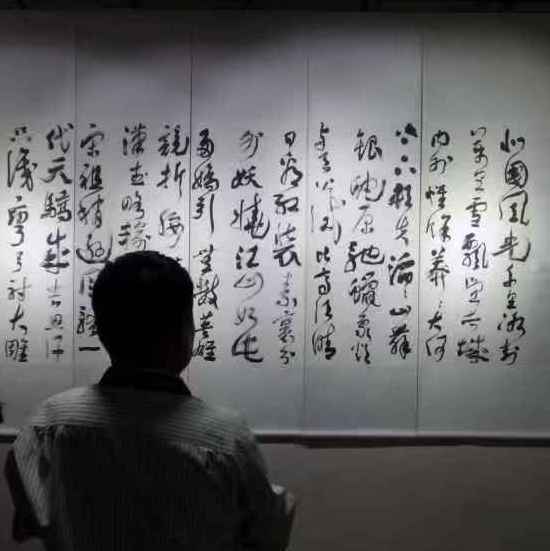 北國風光千里冰封
萬里雪飄望长城
内外惟餘莽莽大河
上下顿失滔滔山舞
銀蛇原馳蠟象欲
与天公试比高须晴
日看红裝素裹分
外妖嬈江山如此
多嬌引無数英雄
競折腰
漢武略輸
宋祖稍逊风骚一
代天驕成吉思汗
只識彎弓射大雕